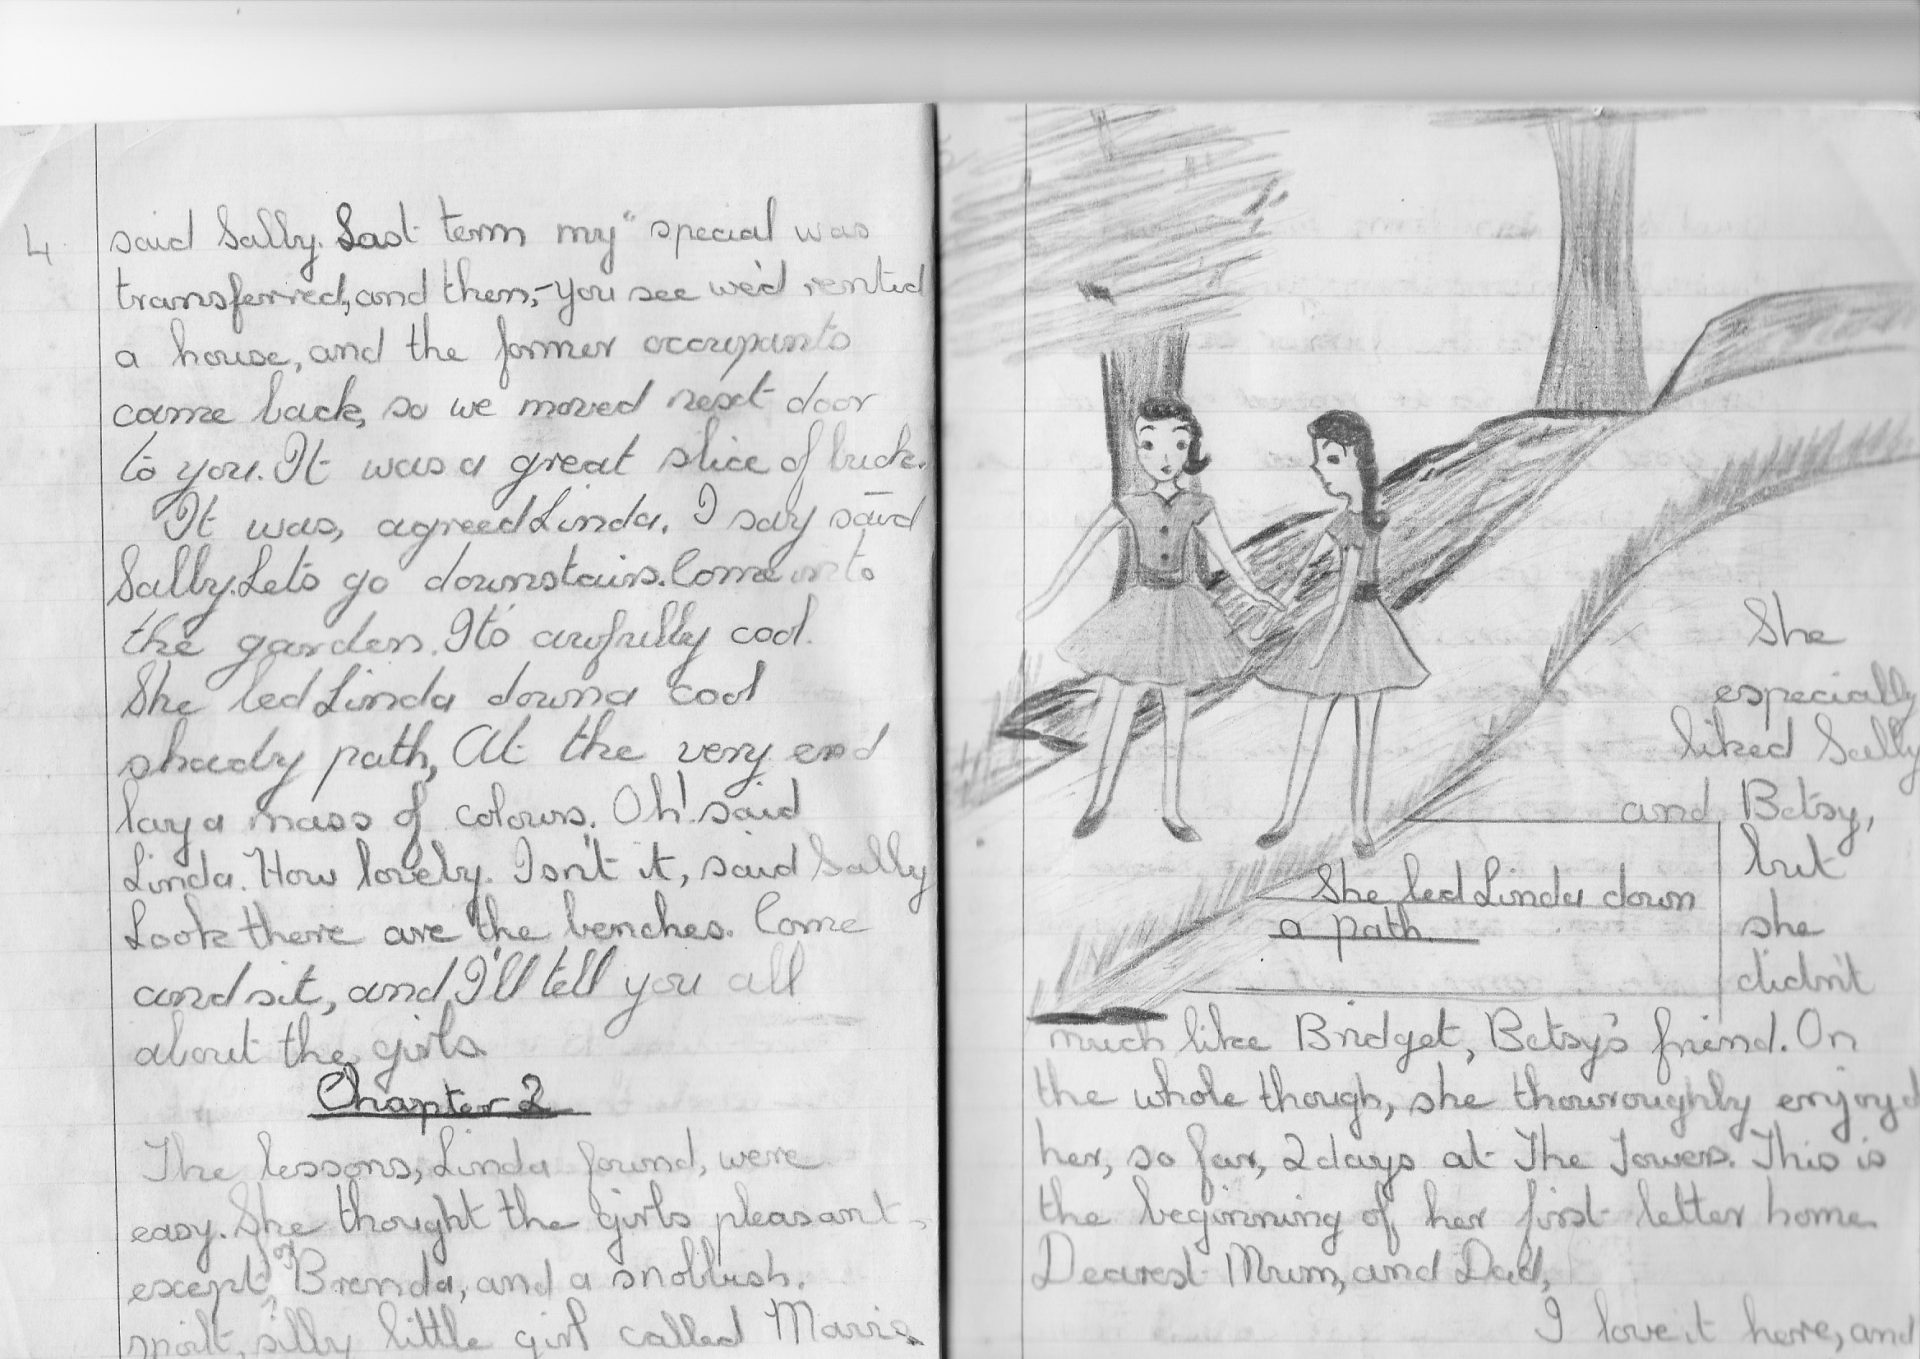 4
said Sally. Last term my "special was
transferred, and then,- you see we'd rented
a house, and the former occupants
came back, so we moved next door
to you. It was a great slice of luck.
It was, agreed Linda. I say said
Sally. Let's go downstairs. Come into
the garden. It's awfully cool.
She led Linda down a cool
shady path, At the very end
lay a mass of colours. Oh! said
Linda. How lovely. Isn't it, said Sally
Look there are the benches. Come
and sit, and I'll tell you all
about the girls
Chapter 2
The lessons, Linda found, were
easy. She thought the girls pleasant,
except for Brenda, and a snobbish.
spoilt, silly little girl called Marie.
She led Linda down
a path.
She
especially
liked Sally
and Betsy,
but
she
didn't
much like Bridget, Betsy's friend. On
the whole though, she thowroughly enjoyed
her, so far, 2 days at The Towers. This is
the beginning of her first letter home.
Dearest Mum, and Dad,
I love it here, and